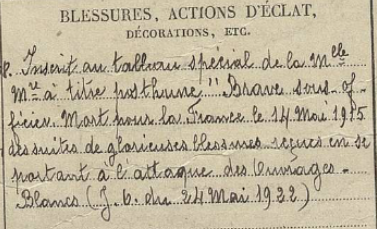 BLESSURES, ACTIONS D'ÉCLAT,
DÉCORATIONS, ETC.
P. Inscrit au tableau spécial de la Mlle
Mre à titre posthume "Brave sous-of-
ficier. Mort pour la France le 14 Mai 1915
des suites de glorieuses blessures reçues en se
portant à l'attaque des Ouvrages-
Blancs (J. O. du 24 Mai 1922)